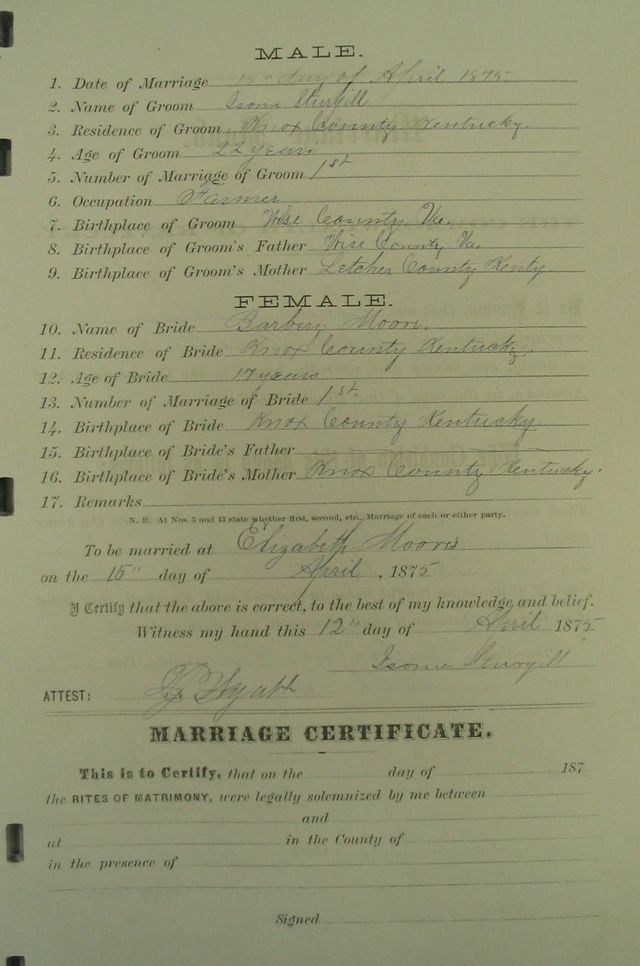 MALE.
1. Date of Marriage 15" day of April 1875
2. Name of Groom Isom Sturgill
3. Residence of Groom Knox County Kentucky
4. Age of Groom 22 years
5. Number of Marriage of Groom 1st
6. Occupation Farmer
7. Birthplace of Groom Wise County Va.
8. Birthplace of Groom's Father Wise County Va.
9. Birthplace of Groom's Mother Letcher County Kenty
FEMALE.
10. Name of Bride Barbery Moore.
11. Residence of Bride Knox County Kentucky.
12. Age of Bride 17 years
13. Number of Marriage of Bride 1st.
14. Birthplace of Bride Knox County Kentucky
15. Birthplace of Bride's Father
16. Birthplace of Bride's Mother Knox County Kentucky.
17. Remarks
N. B. At Nos. 5 and 13 state whether first, second, etc., Marriage of each or either party.
To be married at Elizabeth Moores
on the 15" day of April, 1875
I Certify that the above is correct, to the best of my knowledge and belief.
Witness my hand this 12" day of April 1875
Isome Sturgill
ATTEST: Wyatt
MARRIAGE CERTIFICATE.
This is to Certify, that on the day of 187
the RITES OF MATRIMONY, were legally solemnized by me between
and
at in the County of
in the presence of
Signed